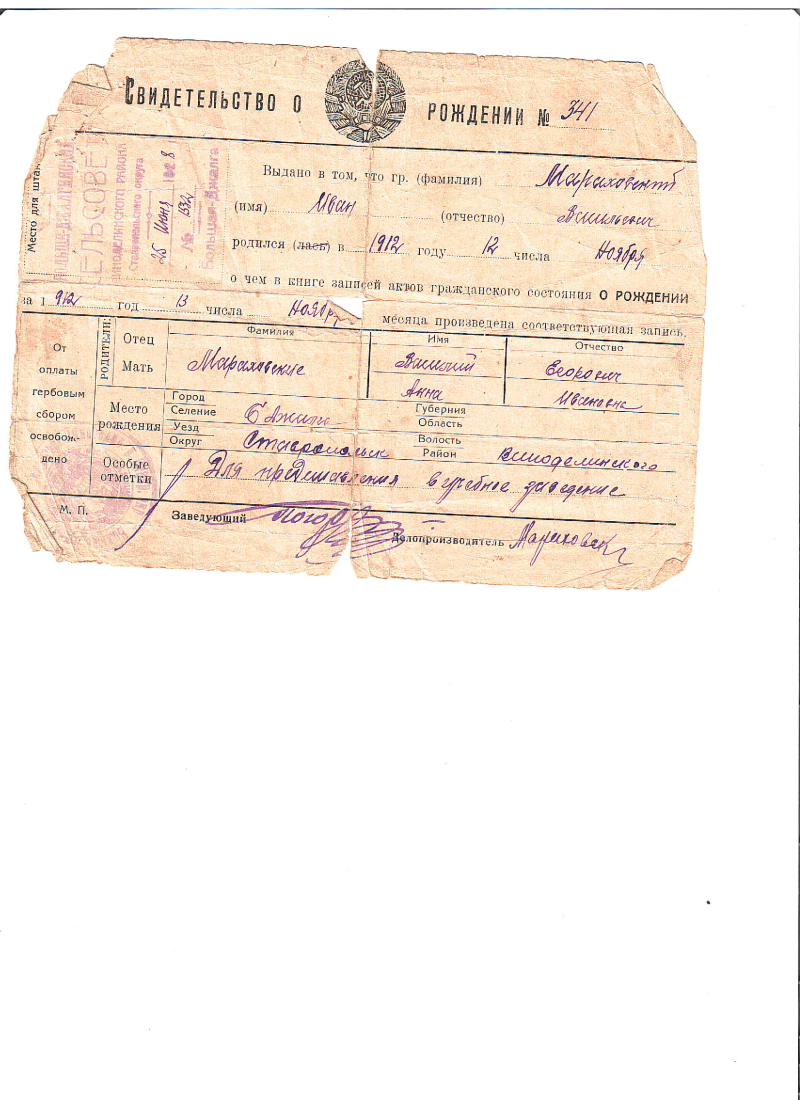 СВИДЕТЕЛЬСТВО О РОЖДЕНИИ № 341
Место для шта
СЕЛЬСОВЕТ
Ставропольского округа
25 Июня 1928
№ 1532
Большая-Джалга
Выдано в том, что гр. (фамилия) Мараховский
(имя) Иван (отчество) Васильевич
родился (лась) в 1912 году 12 числа Ноября
о чем в книге записей актов гражданского состояния О РОЖДЕНИИ
за 1912 год 13 числа Ноября месяца произведена соответствующая запись.
От оплаты гербовым сбором освобождено
РОДИТЕЛИ:
Фамилия Имя Отчество
Отец Мараховские Василий Егорович
Мать Анна Ивановна
Место рождения
Город Губерния
Селение Б Джалга Область
Уезд Волость
Округ Ставропольск Район Виноделинского
Особые отметки Для представления в учебное заведение
М. П. Заведующий
Делопроизводитель Мараховск